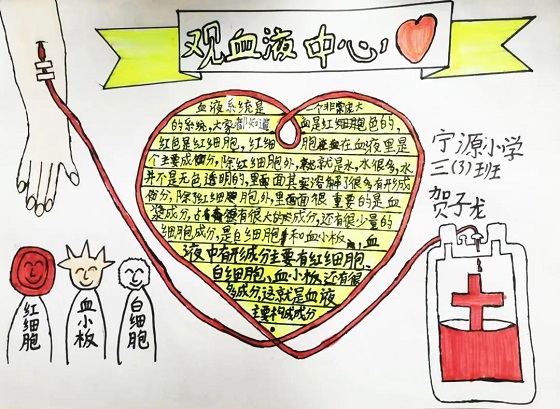 观血液中心
血液系统是一个非常庞大
的系统,大家都知道血是红细胞色的,
红色是红细胞,红细胞 在血液里是
个主要成分,除红细胞外,就是水,水很多,水
并不是无色透明的,里面其实溶解了很多有形成
分,除红细胞外,里面很重要的是血
浆成分,占有很大的成分,还有很少量的
细胞成分,是白细胞和血小板,血
液中有形成分主要有红细胞、
白细胞、血小板还有很
多成分,这就是血液
主要构成成分
宁源小学
三(3)班
贺子龙
红细胞
血小板
白细胞